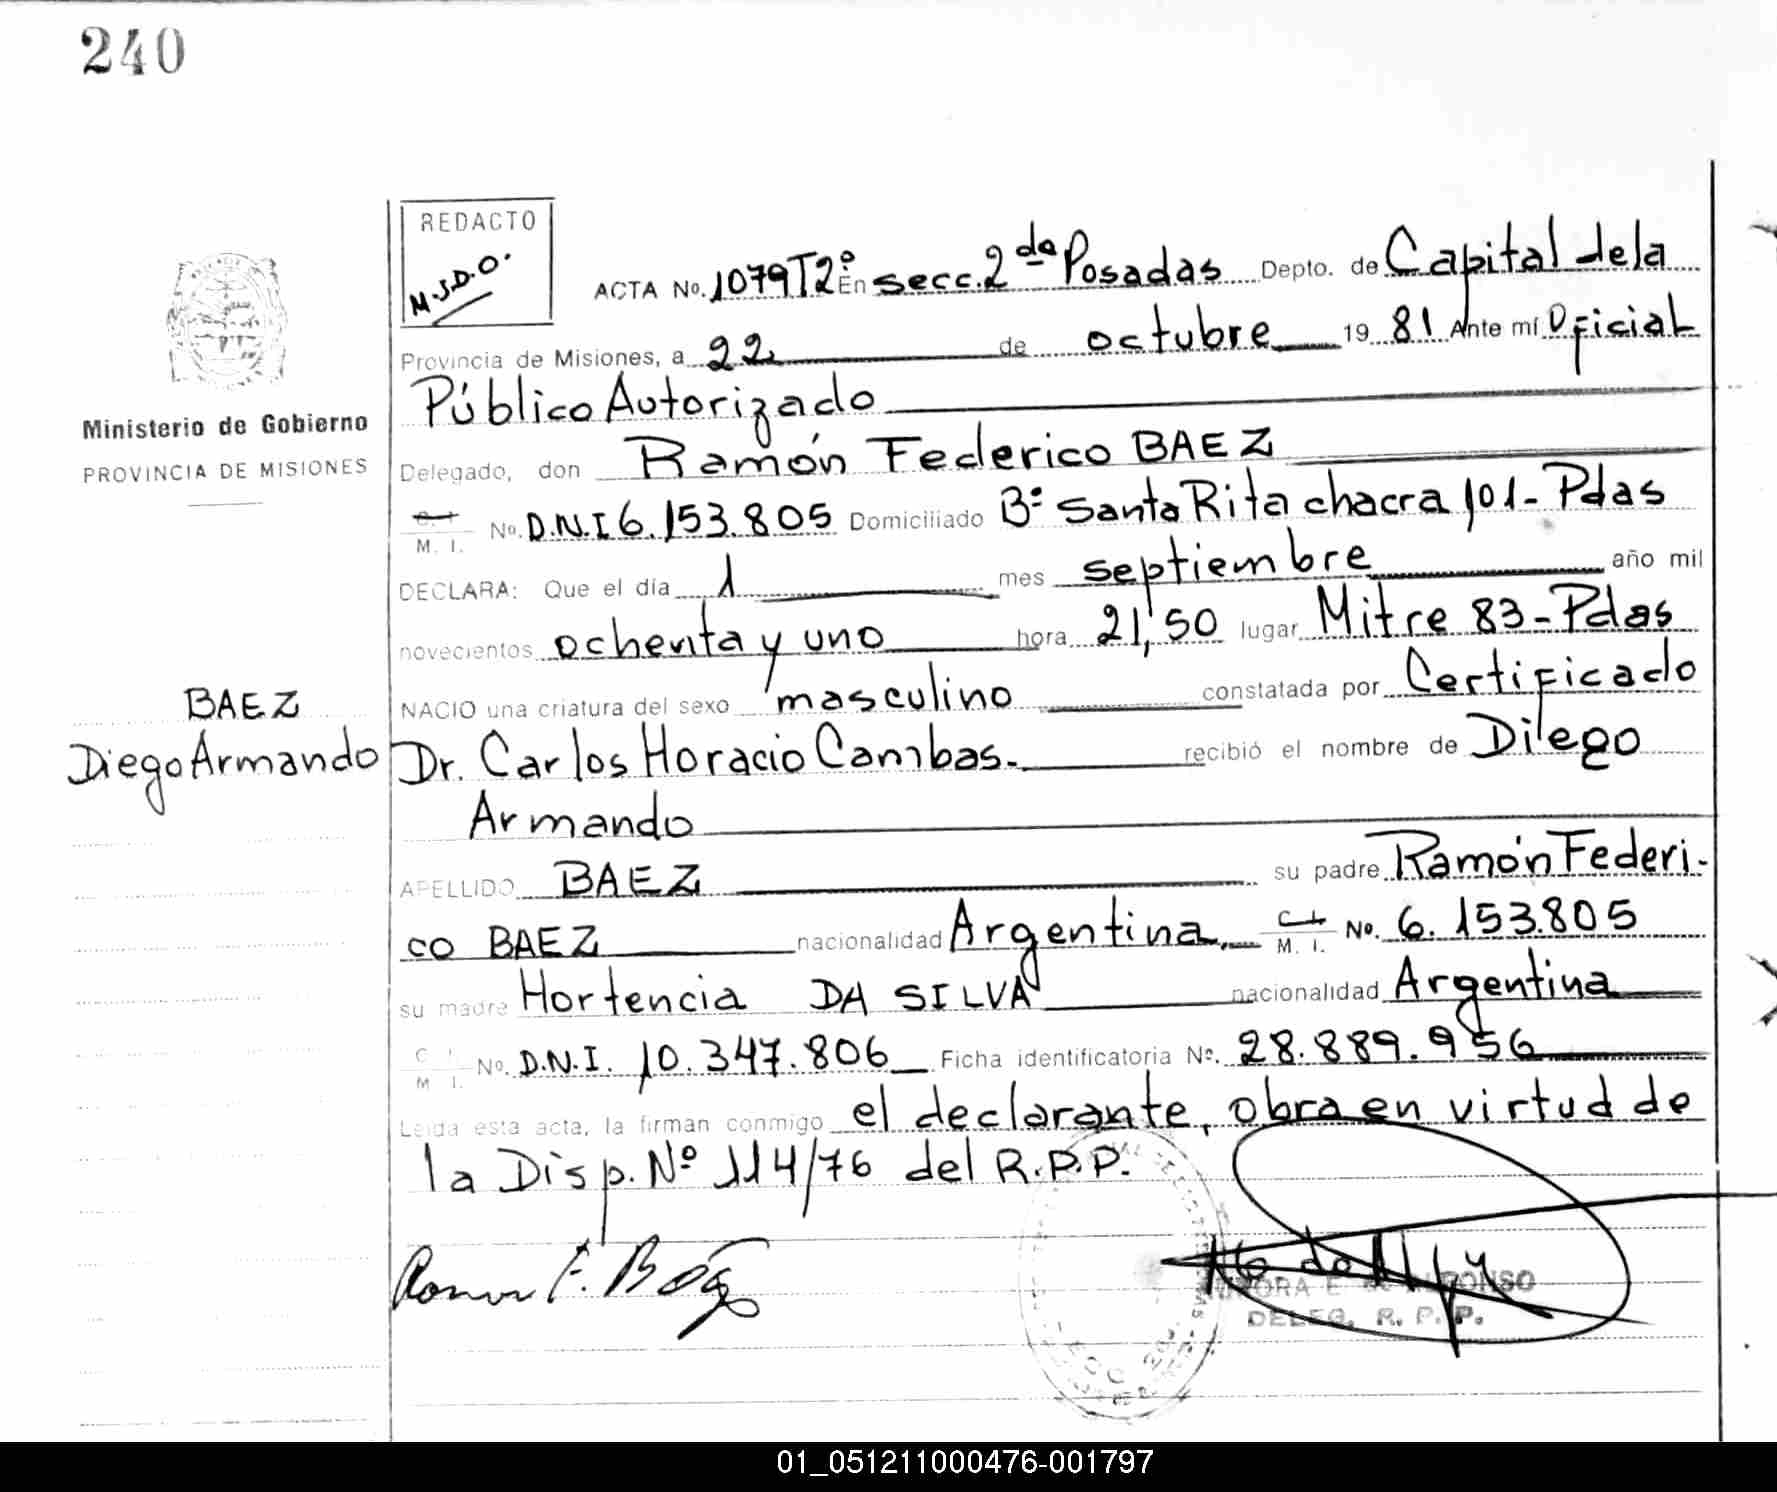 240
REDACTO
M.J.D.O.
ACTA No. 1079 T2º En secc. 2da Posadas Depto. de Capital de la
Provincia de Misiones, a 22 de octubre 19 81 Ante mí Oficial
Público Autorizado
Ministerio de Gobierno
PROVINCIA DE MISIONES
Delegado, don Ramón Federico BAEZ
C. I.
M. I. No. D.N.I 6.153.805 Domiciliado Bº Santa Rita chacra 101 - Pdas
DECLARA: Que el día 1 mes septiembre año mil
novecientos ochenta y uno hora 21,50 lugar Mitre 83 - Pdas
NACIO una criatura del sexo masculino constatada por Certificado
BAEZ
Diego Armando
Dr. Carlos Horacio Cambas.- recibió el nombre de Diego
Armando
APELLIDO BAEZ su padre Ramón Federi-
co BAEZ nacionalidad Argentina, C. I.
M. I. No. 6.153.805
su madre Hortencia DA SILVA nacionalidad Argentina
C. I.
M. I. No. D.N.I. 10.347.806 Ficha identificatoria Nº. 28.889.956
Leida esta acta, la firman conmigo el declarante, obra en virtud de
la Disp. Nº 114/76 del R.P.P.
Ramon F. Báez
DELEG. R. P. P.
01_051211000476-001797